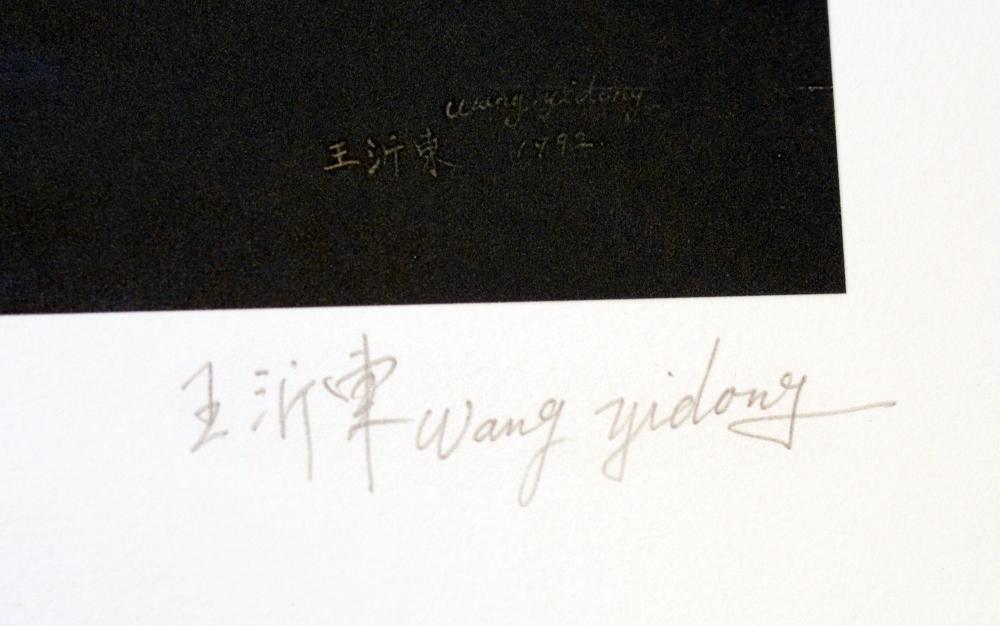 wang yidong
王沂東 1992.
王沂東 wang yidong